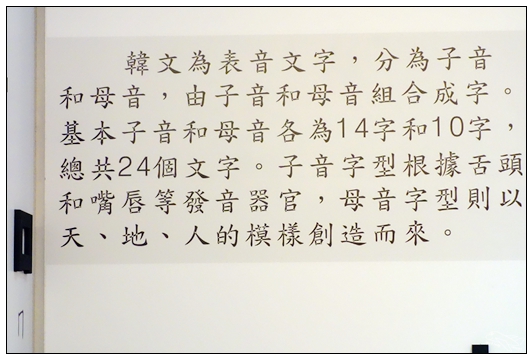 韓文為表音文字，分為子音
和母音，由子音和母音組合成字。
基本子音和母音各為14字和10字，
總共24個文字。子音字型根據舌頭
和嘴唇等發音器官，母音字型則以
天、地、人的模樣創造而來。